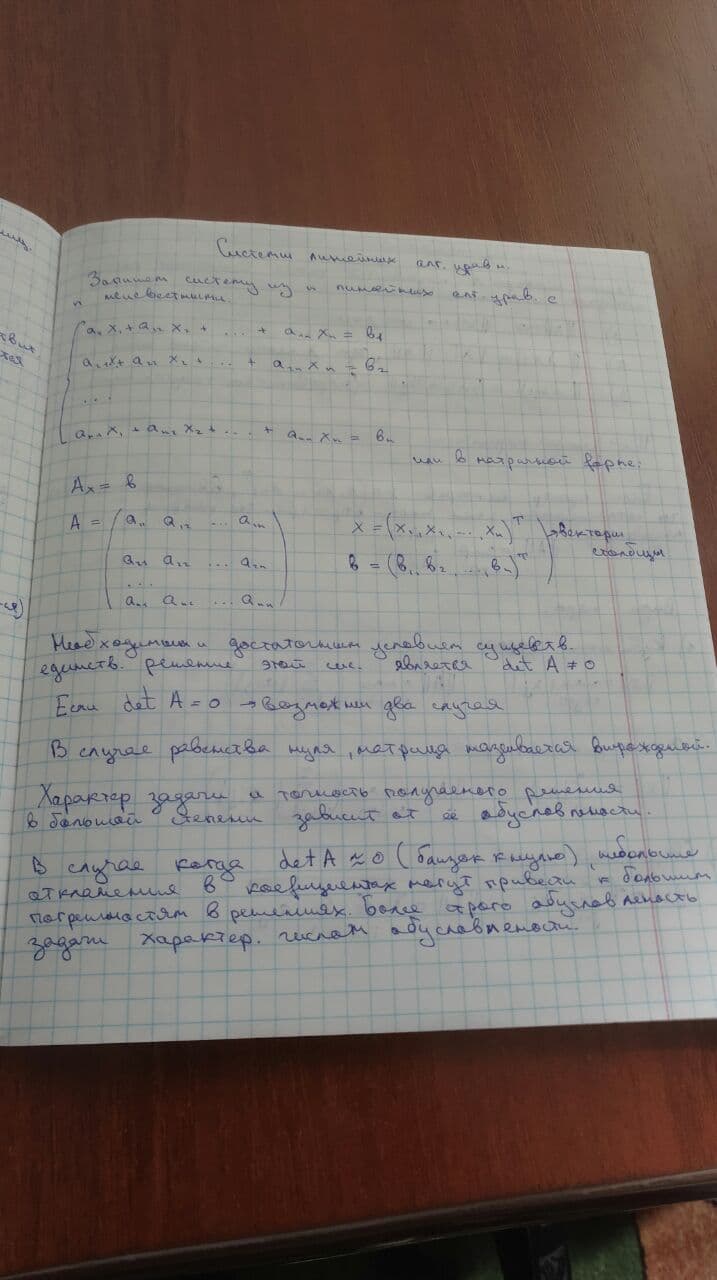 Системы линейных алг. уравн.
Запишем систему из n линейных алг. урав. с
n неизвестными.
a₁₁x₁ + a₁₂x₂ + ... + a₁ₙxₙ = b₁
a₂₁x₁ + a₂₂x₂ + ... + a₂ₙxₙ = b₂
...
aₙ₁x₁ + aₙ₂x₂ + ... + aₙₙxₙ = bₙ
или в матричной форме:
Ax = b
A = (a₁₁ a₁₂ ... a₁ₙ
a₂₁ a₂₂ ... a₂ₙ
...
aₙ₁ aₙ₂ ... aₙₙ)
x = (x₁, x₂, ..., xₙ)ᵀ
b = (b₁, b₂, ..., bₙ)ᵀ
→ векторы
столбцы
Необходимым и достаточным условием существ.
единств. решение этой сис. является det A ≠ 0
Если det A = 0 → возможны два случая
В случае равенства нуля, матрица называется вырожденой.
Характер задачи и точность получаемого решения
в большой степени зависит от её обусловлености.
В случае когда det A ≈ 0 (близок к нулю), небольшие
отклонения в коефициентах могут привести к большим
погрешностям в решениях. Более строго обусловленость
задачи характер. числом обусловлености.